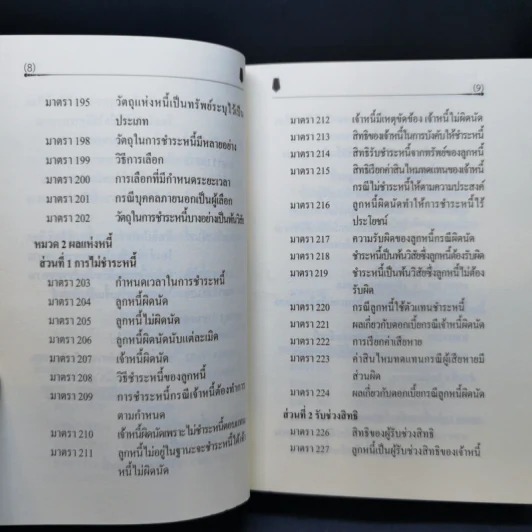 (8)
มาตรา 195 วัตถุแห่งหนี้เป็นทรัพย์ระบุไว้เป็น
ประเภท
มาตรา 198 วัตถุในการชำระหนี้มีหลายอย่าง
มาตรา 199 วิธีการเลือก
มาตรา 200 การเลือกที่มีกำหนดระยะเวลา
มาตรา 201 กรณีบุคคลภายนอกเป็นผู้เลือก
มาตรา 202 วัตถุในการชำระหนี้บางอย่างเป็นพ้นวิสัย
หมวด 2 ผลแห่งหนี้
ส่วนที่ 1 การไม่ชำระหนี้
มาตรา 203 กำหนดเวลาในการชำระหนี้
มาตรา 204 ลูกหนี้ผิดนัด
มาตรา 205 ลูกหนี้ไม่ผิดนัด
มาตรา 206 ลูกหนี้ผิดนัดนับแต่ละเมิด
มาตรา 207 เจ้าหนี้ผิดนัด
มาตรา 208 วิธีชำระหนี้ของลูกหนี้
มาตรา 209 การชำระหนี้กรณีเจ้าหนี้ต้องทำการ
ตามกำหนด
มาตรา 210 เจ้าหนี้ผิดนัดเพราะไม่ชำระหนี้ตอบแทน
มาตรา 211 ลูกหนี้ไม่อยู่ในฐานะจะชำระหนี้ได้
หนี้ไม่ผิดนัด
(9)
มาตรา 212 เจ้าหนี้มีเหตุขัดข้อง เจ้าหนี้ไม่ผิดนัด
มาตรา 213 สิทธิของเจ้าหนี้ในการบังคับให้ชำระหนี้
มาตรา 214 สิทธิรับชำระหนี้จากทรัพย์ของลูกหนี้
มาตรา 215 สิทธิเรียกค่าสินไหมทดแทนของเจ้าหนี้
กรณีไม่ชำระหนี้ให้ตามความประสงค์
มาตรา 216 ลูกหนี้ผิดนัดทำให้การชำระหนี้ไร้
ประโยชน์
มาตรา 217 ความรับผิดของลูกหนี้กรณีผิดนัด
มาตรา 218 ชำระหนี้เป็นพ้นวิสัยซึ่งลูกหนี้ต้องรับผิด
มาตรา 219 ชำระหนี้เป็นพ้นวิสัยซึ่งลูกหนี้ไม่ต้อง
รับผิด
มาตรา 220 กรณีลูกหนี้ใช้ตัวแทนชำระหนี้
มาตรา 221 ผลเกี่ยวกับดอกเบี้ยกรณีเจ้าหนี้ผิดนัด
มาตรา 222 การเรียกค่าเสียหาย
มาตรา 223 ค่าสินไหมทดแทนกรณีผู้เสียหายมี
ส่วนผิด
มาตรา 224 ผลเกี่ยวกับดอกเบี้ยกรณีลูกหนี้ผิดนัด
ส่วนที่ 2 รับช่วงสิทธิ
มาตรา 226 สิทธิของผู้รับช่วงสิทธิ
มาตรา 227 ลูกหนี้เป็นผู้รับช่วงสิทธิของเจ้าหนี้